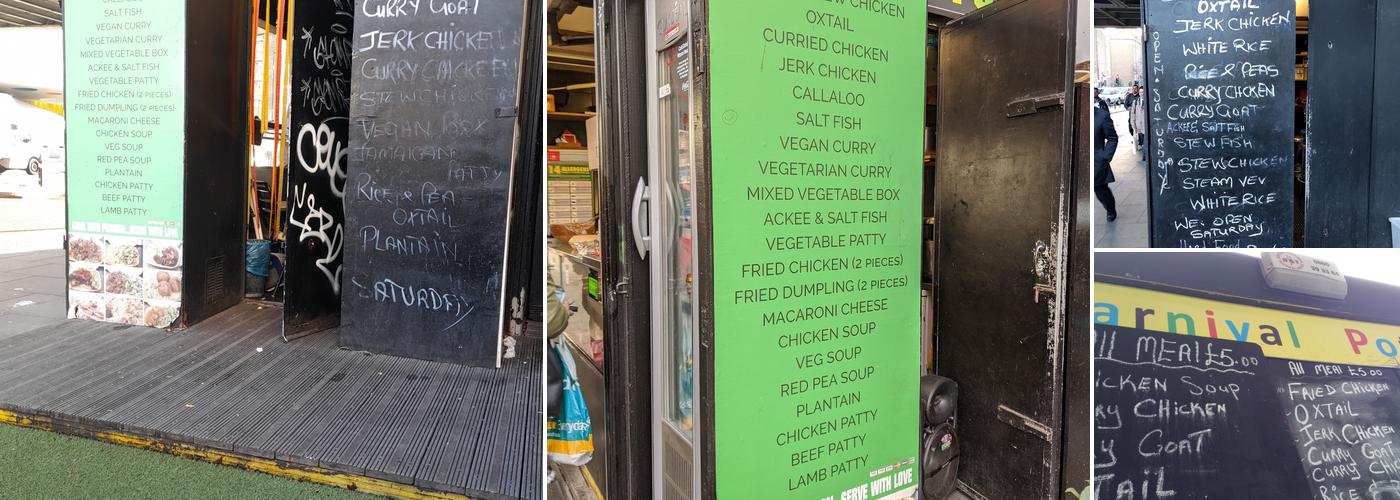 SALT FISH
VEGAN CURRY
VEGETARIAN CURRY
MIXED VEGETABLE BOX
ACKEE & SALT FISH
VEGETABLE PATTY
FRIED CHICKEN (2 PIECES)
FRIED DUMPLING (2 PIECES)
MACARONI CHEESE
CHICKEN SOUP
VEG SOUP
RED PEA SOUP
PLANTAIN
CHICKEN PATTY
BEEF PATTY
LAMB PATTY
SERVE WITH LOVE
CURRY GOAT
JERK CHICKEN
CURRY CHICKEN
STEW CHICKEN
VEGAN BOX
JAMAICAN
PATTY
RICE & PEA
OXTAIL
PLANTAIN
SATURDAY
CHICKEN
OXTAIL
CURRIED CHICKEN
JERK CHICKEN
CALLALOO
SALT FISH
VEGAN CURRY
VEGETARIAN CURRY
MIXED VEGETABLE BOX
ACKEE & SALT FISH
VEGETABLE PATTY
FRIED CHICKEN (2 PIECES)
FRIED DUMPLING (2 PIECES)
MACARONI CHEESE
CHICKEN SOUP
VEG SOUP
RED PEA SOUP
PLANTAIN
CHICKEN PATTY
BEEF PATTY
LAMB PATTY
SERVE WITH LOVE
OXTAIL
JERK CHICKEN
WHITE RICE
RICE & PEAS
CURRY CHICKEN
CURRY GOAT
ACKEE & SALT FISH
STEW FISH
STEW CHICKEN
STEAM VEV
WHITE RICE
WE: OPEN
SATURDAY
OPEN SATURDAY
arnival Po
ALL MEAL £5.00
ICKEN SOUP
RY CHICKEN
Y GOAT
TAIL
All MEAL £5.00
FRIED CHICKEN
- OXTAIL
- JERK CHICKEN
CURRY GOAT
CURRY CH